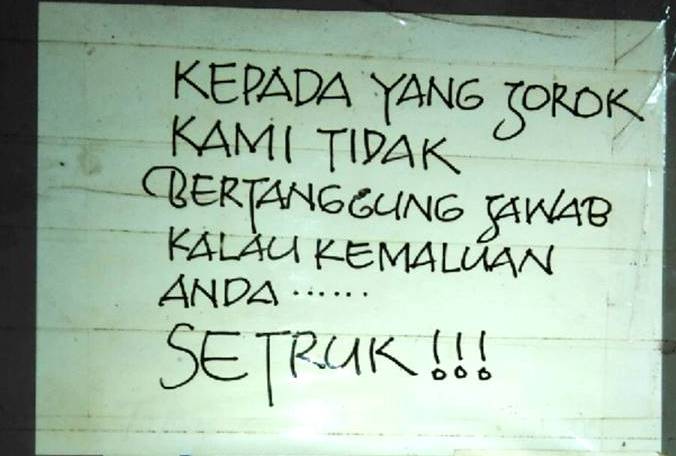 KEPADA YANG JOROK
KAMI TIDAK
BERTANGGUNG JAWAB
KALAU KEMALUAN
ANDA ......
SETRUK !!!